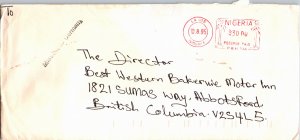 LAGOS
12.8.95
NIGERIA
330
POSTAGE PAID
The Director
Best Western Bakerview Motor Inn
1821 SUMAS WAY, Abbotsford
British Columbia V2S4L5